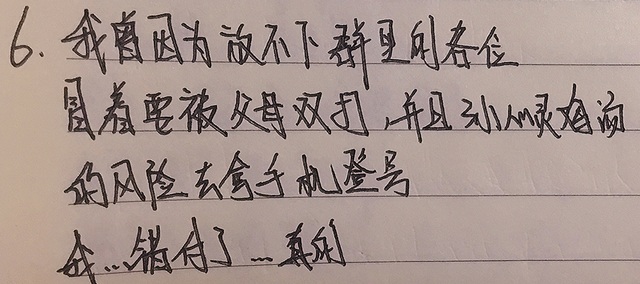 6. 我曾因为放不下群里的各位
冒着要被父母双打,并且
的风险去拿手机登号
我...错付了...真的